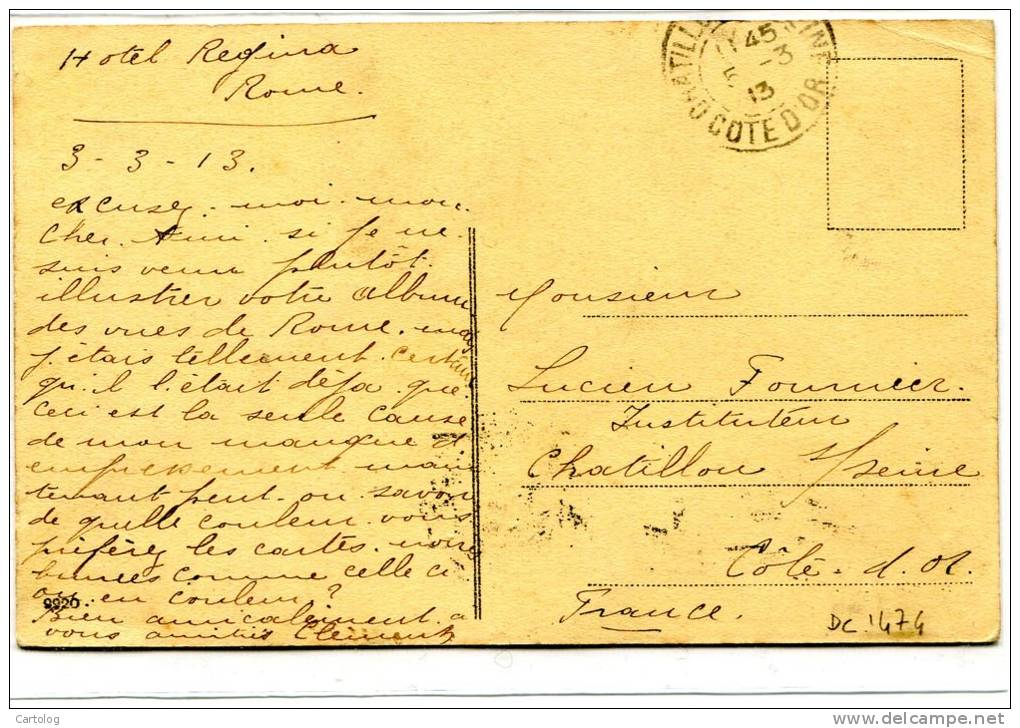 Hotel Regina
Rome.
3-3-13.
excusez-moi-mon
cher Ami si je ne
suis venu plutôt
illustrer votre album
des vues de Rome. mais
j'étais tellement certain
qu'il l'était déja que
ceci est la seule cause
de mon manque d'
empressement main
tenant peut-on savoir
de quelle couleur vous
préférez les cartes. noires
bunées comme celle ci
ou en couleur?
Bien amicalement a
vous amitiés Clement
9920
CHATILLON SEINE
COTE D'OR
45
-3
13
Monsieur
Lucien Fournier.
Instituteur
Chatillon s/seine
Côte-d'Or.
France.
DC.1474
Cartolog
delcampe.net